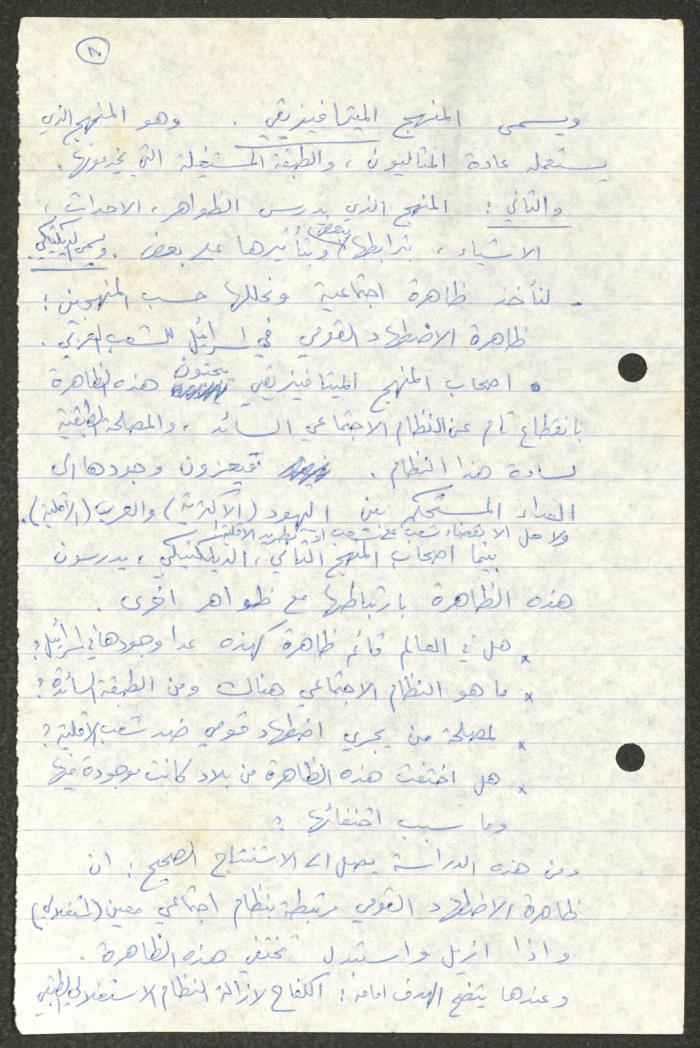 ٢
ويسمى المنهج الميتافيزيقي . وهو المنهج الذي
يستعمله عادة المثاليون ، والطبقة المستغلة التي يخدمونها .
والثاني : المنهج الذي يدرس الظواهر ، الاحداث ،
الاشياء ، بترابطها ببعض وبتأثيرها على بعض . ويسمى الديلكتيكي .
- لنأخذ ظاهرة اجتماعية ونحللها حسب المنهجين :
ظاهرة الاضطهاد القومي في اسرائيل للشعب العربي .
• اصحاب المنهج الميتافيزيقي يبحثون هذه الظاهرة
بانقطاع تام عن النظام الاجتماعي السائد ، والمصلحة الطبقية
لسادة هذا النظام . فيعزون وجودها الى
العداء المستحكم بين اليهود (الاكثرية) والعرب (الاقلية) .
ولا حل الا بقضاء شعب على شعب او تطريد الاقلية
بينما اصحاب المنهج الثاني ، الديلكتيكي ، يدرسون
هذه الظاهرة بارتباطها مع ظواهر اخرى .
× هل في العالم قائم ظاهرة كهذه عدا وجودها في اسرائيل ؟
× ما هو النظام الاجتماعي هناك ومن الطبقة السائدة ؟
× لمصلحة من يجري اضطهاد قومي ضد شعب الاقلية ؟
× هل اختفت هذه الظاهرة من بلاد كانت موجودة فيها
وما سبب اختفائها ؟
ومن هذه الدراسة يصل الى الاستنتاج الصحيح : ان
ظاهرة الاضطهاد القومي مرتبطة بنظام اجتماعي معين (استغلالي)
واذا ازيل واستبدل تختفي هذه الظاهرة .
وعندها يتضح الهدف امامه : الكفاح لازالة النظام الاستغلالي الطبقي